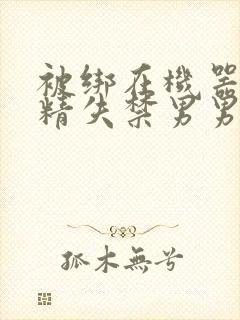 被绑在機器
精失禁男男
孤木無兮